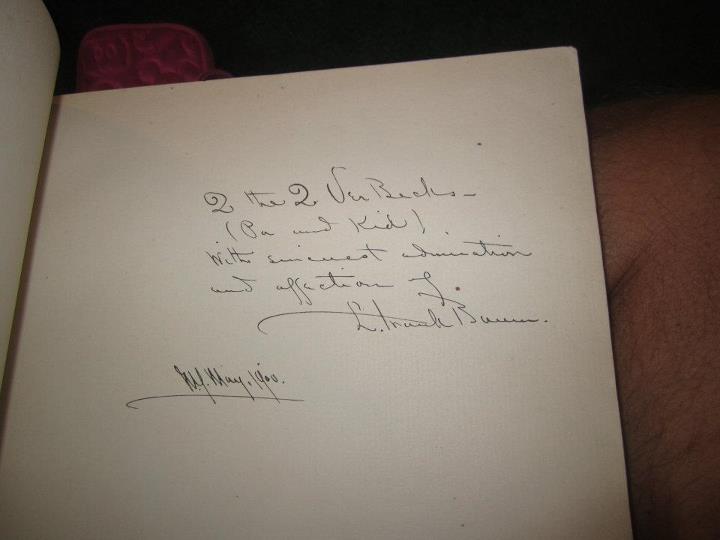 2 the 2 Ver Becks —
(Pa and Kid)
With sincerest admiration
and affection of
L. Frank Baum.
N.Y. May, 1900.